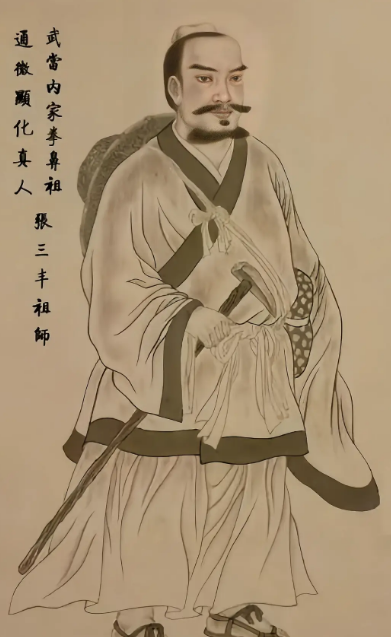 武當内家拳鼻祖
張三丰祖師
通微顯化真人